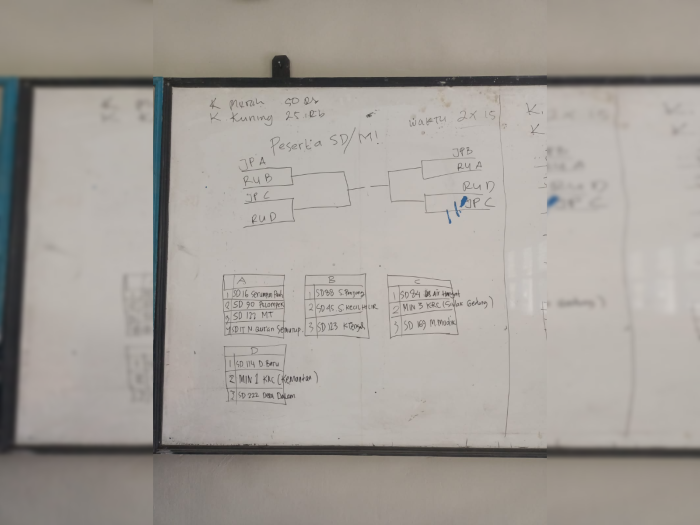 K Merah 50 Rb
K Kuning 25 Rb
WAKTU 2 x 15
Peserta SD/MI
JP A
RU B
JP C
RU D
JP B
RU A
RU D
JP C
A
1 SD 16
2 SD 90
3 SD 122 MT
4 SD IT N. Quran Semurup
B
1 SD 38 S.
2 SD 45 S.
3 SD 123 K.
C
1 SD 84
2 MIN 3 KRC
3 SD 169 M.
D
1 SD 114 D. Baru
2 MIN 1 KRC (Kemantan)
3 SD 222 Desa Dalam